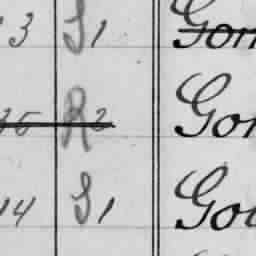 3 S1 Gon
35 R2 Gon
14 S1 Go